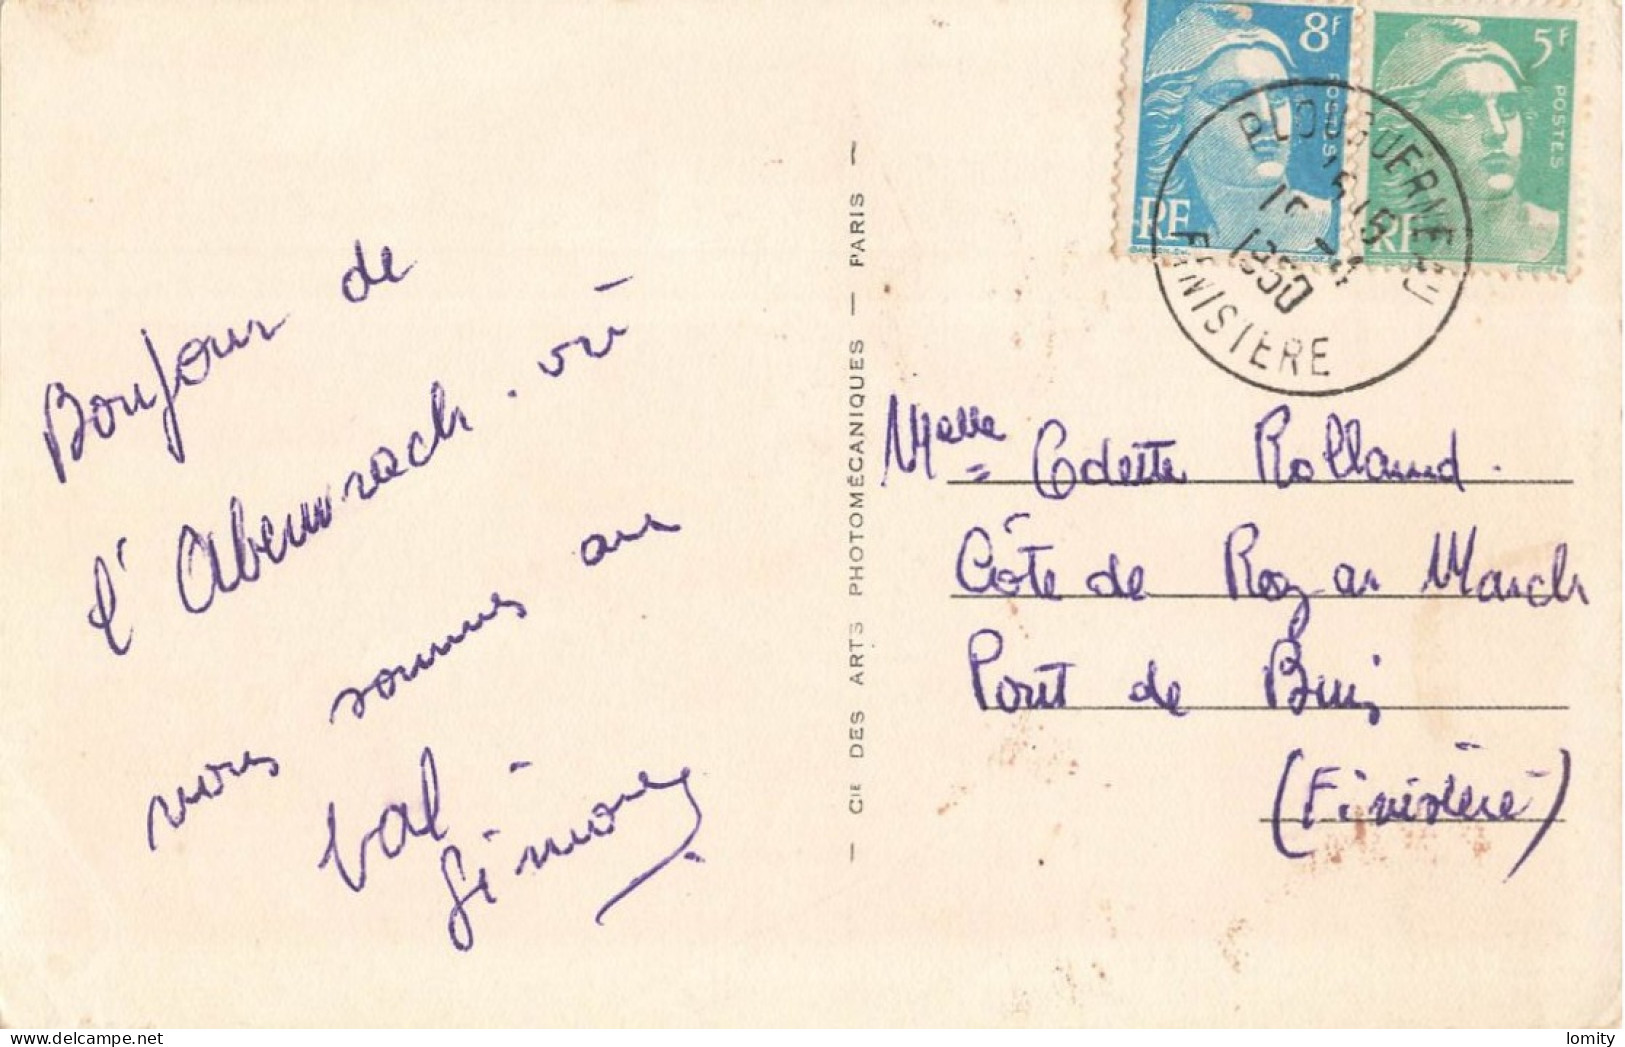 Bonjour de
l'Aberwrach. où
nous sommes au
bal
Simone
CIE DES ARTS PHOTOMÉCANIQUES — PARIS —
8F
POSTES
RF
5F
POSTES
RF
PLOUGUERNEAU
1950
FINISTERE
Melle Odette Rolland.
Côte de Roz ar March
Pont de Buis
(Finistère)
lomity